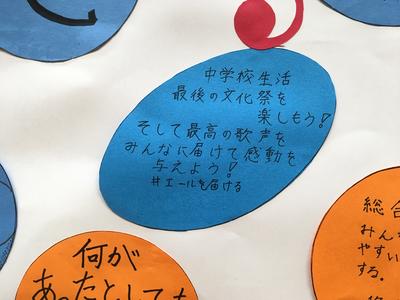 中学校生活
最後の文化祭を
楽しもう!
そして最高の歌声を
みんなに届けて感動を
与えよう!
#エールを届ける
総合
みん
やすい
する。
何が
あったとしても